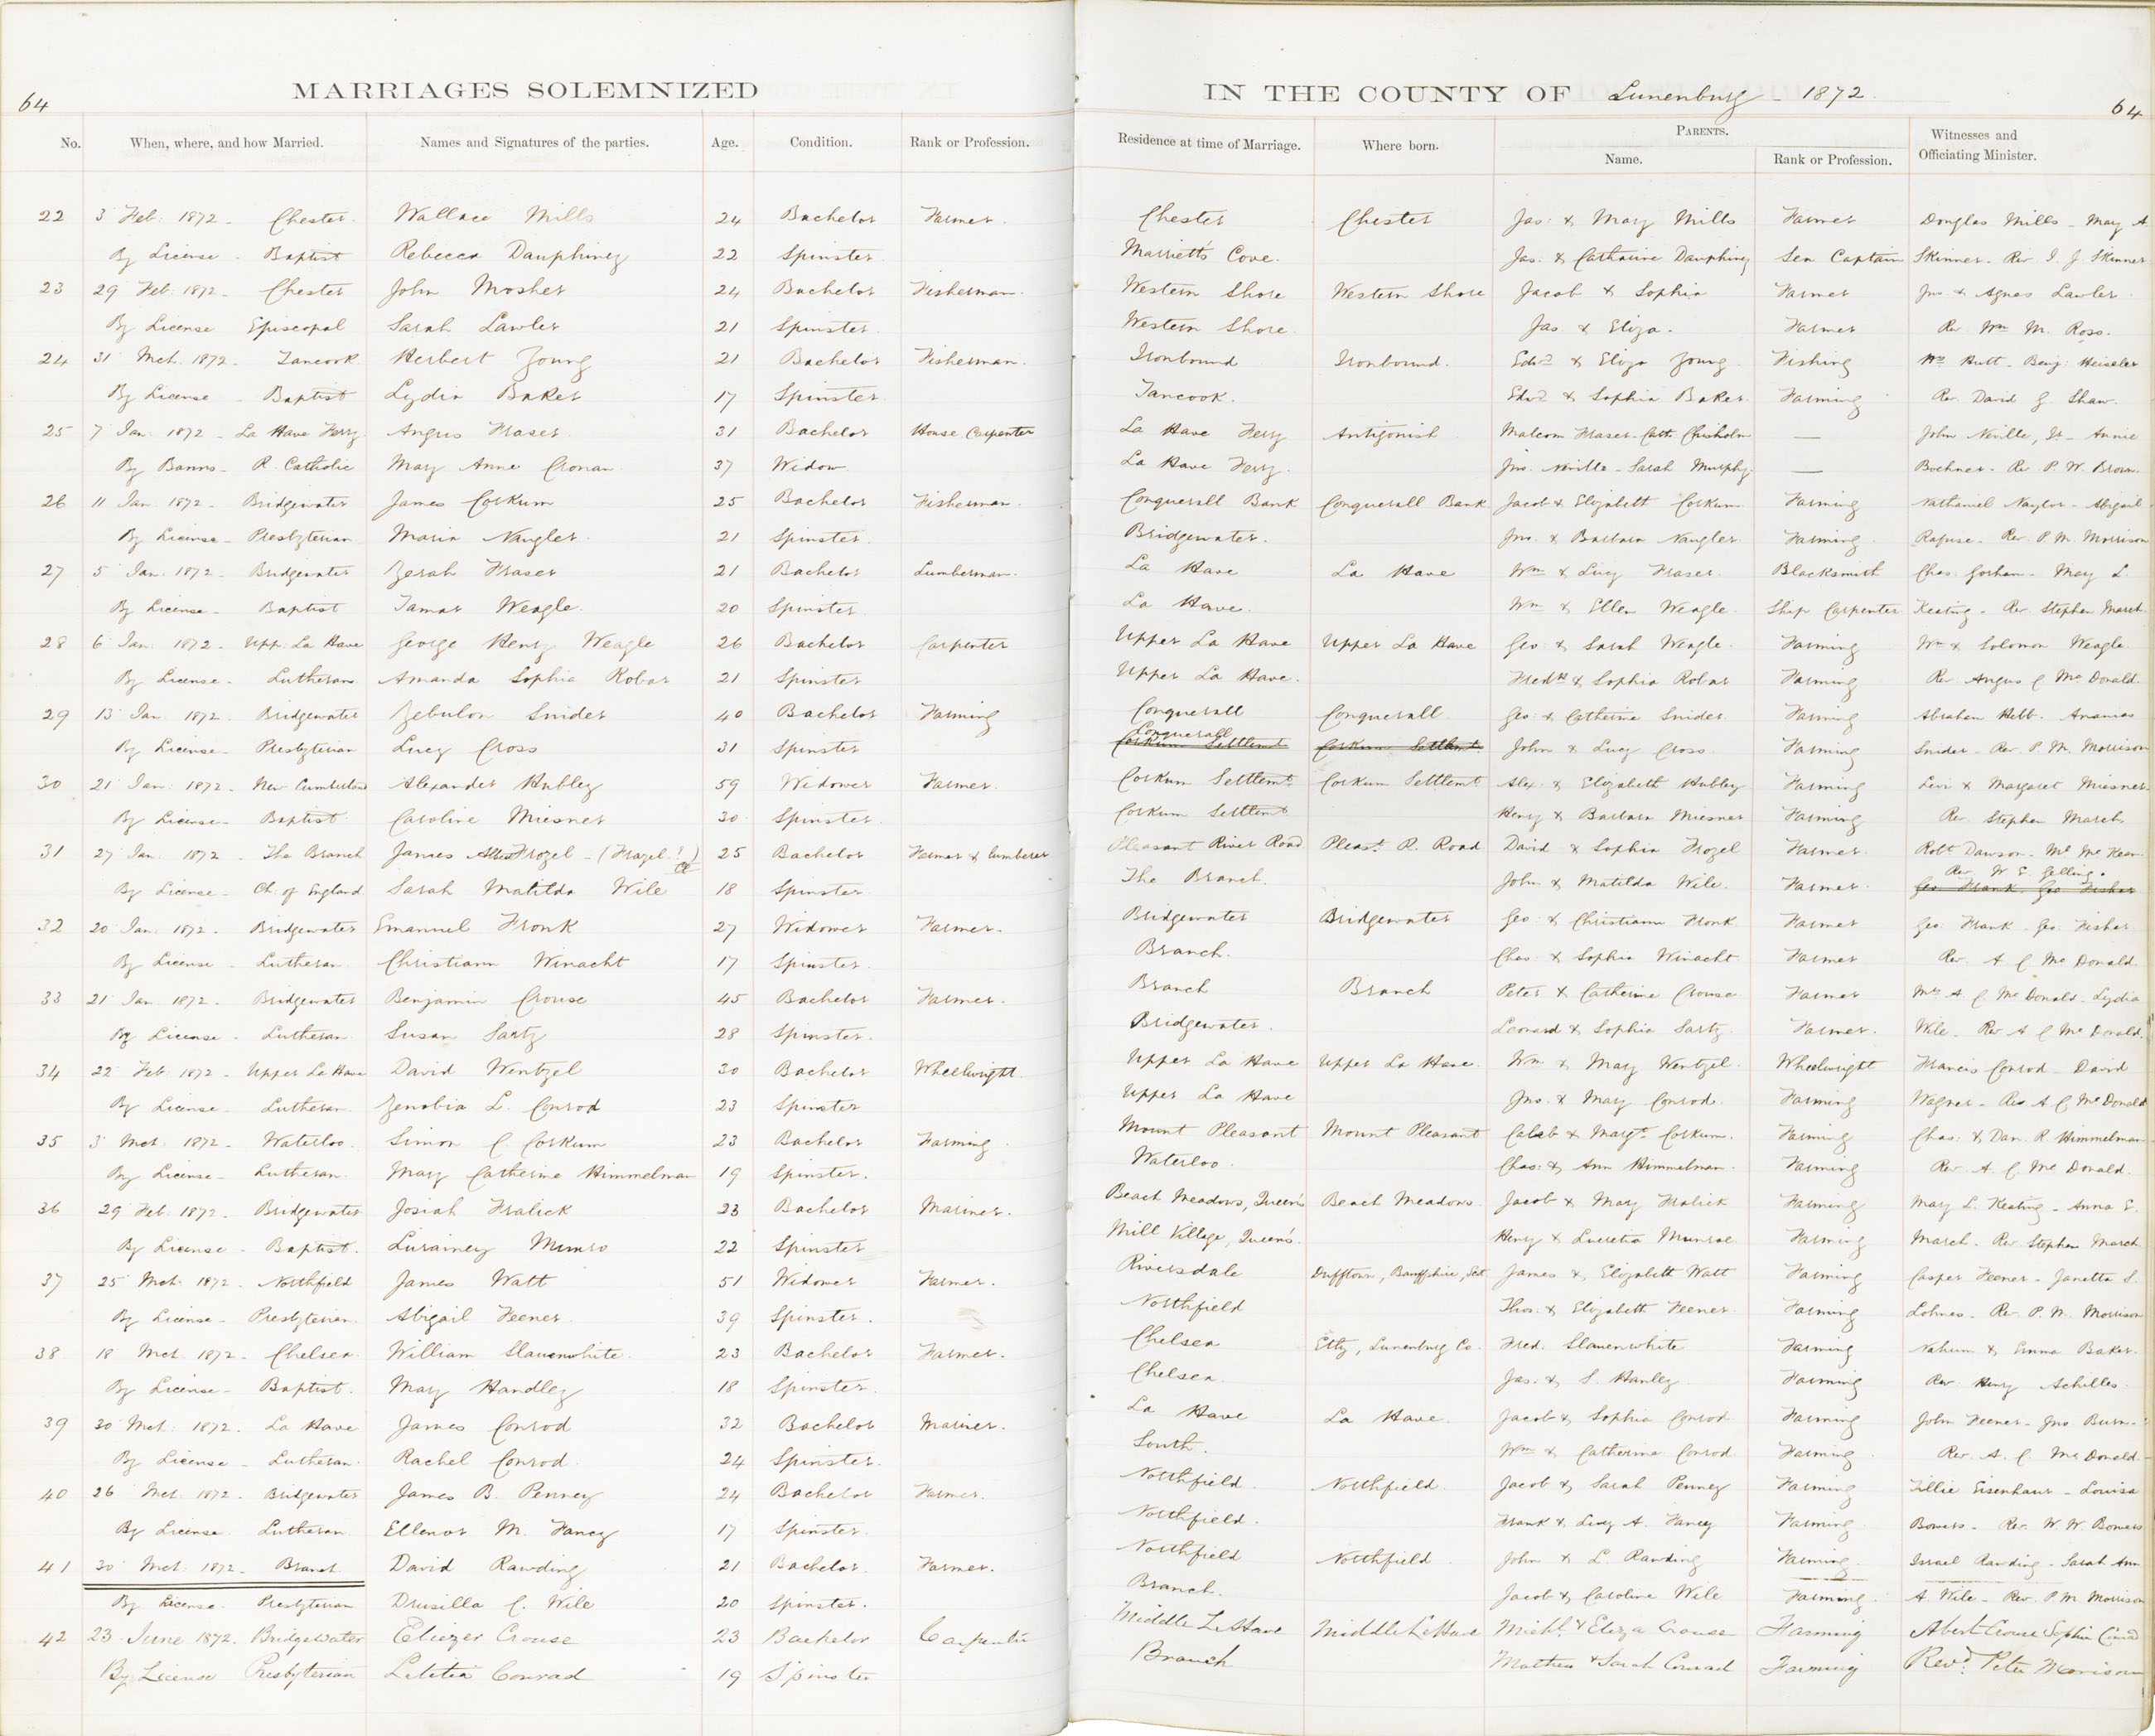 64
MARRIAGES SOLEMNIZED
IN THE COUNTY OF Lunenburg - 1872.
64
No. When, where, and how Married. Names and Signatures of the parties. Age. Condition. Rank or Profession. Residence at time of Marriage. Where born. PARENTS. Name. Rank or Profession. Witnesses and Officiating Minister.
22 3 Feb: 1872 - Chester. Wallace Mills 24 Bachelor Farmer. Chester Chester Jas: & Mary Mills Farmer Douglas Mills - May A.
By License - Baptist Rebecca Dauphiney 22 Spinster Marriett's Cove. Jas: & Catharine Dauphiney Sea Captain Skinner - Rev I. J. Skinner
23 29 Feb: 1872 - Chester John Mosher 24 Bachelor Fisherman. Western Shore Western Shore Jacob & Sophia Farmer Jno & Agnes Lawler.
By License Episcopal Sarah Lawler 21 Spinster Western Shore. Jas. & Eliza. Farmer Rev Wm M. Ross.
24 31 Mch. 1872 - Tancook Herbert Young 21 Bachelor Fisherman. Ironbound Ironbound. Edwd & Eliza Young Fishing Wm Hutt - Benj: Heisler
By License - Baptist Lydia Baker 17 Spinster. Tancook. Edwd & Sophia Baker. Farming Rev. David G. Shaw.
25 7 Jan: 1872 - La Have Ferry Angus Fraser 31 Bachelor House Carpenter La Have Ferry Antigonish Malcom Fraser - Cath. Chisholm — John Neville, Jr - Annie
By Banns - R. Catholic Mary Anne Cronan 37 Widow La Have Ferry. Jno. Neville - Sarah Murphy — Bochner - Rev P. W. Brown.
26 11 Jan. 1872 - Bridgewater James Corkum 25 Bachelor Fisherman. Conquerall Bank Conquerall Bank Jacob & Elizabeth Corkum Farming Nathaniel Naylor - Abigail
By License - Presbyterian Maria Naugler. 21 Spinster. Bridgewater. Jno. & Barbara Naugler Farming Rafuse - Rev. P. M. Morrison
27 5 Jan. 1872 - Bridgewater Zerah Fraser 21 Bachelor Lumberman. La Have La Have Wm & Lucy Fraser. Blacksmith Chas: Gorham - May L.
By License - Baptist Tamar Weagle. 20 Spinster. La Have. Wm & Ellen Weagle. Ship Carpenter Keating - Rev. Stephen March.
28 6 Jan: 1872 - Upp: La Have George Henry Weagle 26 Bachelor Carpenter Upper La Have Upper La Have Geo & Sarah Weagle. Farming Wm & Solomon Weagle.
By License - Lutheran Amanda Sophia Robar 21 Spinster Upper La Have. Fredk & Sophia Robar Farming Rev. Angus C McDonald.
29 13 Jan. 1872. Bridgewater Zebulon Snider 40 Bachelor Farming Conquerall Conquerall. Geo: & Catherine Snider. Farming Abraham Hebb. Ananias
By License - Presbyterian Lucy Cross 31 Spinster Conquerall Corkum Settlemt Corkum Settlemt John & Lucy Cross. Farming Snider - Rev. P. M. Morrison
30 21 Jan: 1872 - New Cumberland Alexander Hubley 59 Widower Farmer. Corkum Settlemt Corkum Settlemt Alex: & Elizabeth Hubley Farming Levi & Margaret Miesner.
By License - Baptist Caroline Miesner 30 Spinster Corkum Settlemt Henry & Barbara Miesner Farming Rev. Stephen March
31 27 Jan: 1872 - The Branch James Frozel - (Frazel?) 25 Bachelor Farmer & lumberer Pleasant River Road Pleast. R. Road David & Sophia Frozel Farmer. Robt Dawson - Mc Kean.
Rev. W. E. Gelling.
By License - Ch. of England Sarah Matilda Wile 18 Spinster The Branch John & Matilda Wile. Farmer. Geo Frank - Geo Fisher
32 20 Jan: 1872 - Bridgewater Emanuel Fronk 27 Widower Farmer. Bridgewater Bridgewater Geo & Christiann Fronk. Farmer Geo Frank - Geo. Fisher
By License - Lutheran Christiann Winacht 17 Spinster. Branch. Chas: & Sophia Winacht. Farmer Rev. A. C McDonald.
33 21 Jan. 1872 - Bridgewater Benjamin Crouse 45 Bachelor Farmer. Branch Branch Peter & Catherine Crouse Farmer Mrs A C McDonald - Lydia
By License - Lutheran. Susan Sartz 28 Spinster. Bridgewater. Leonard & Sophia Sartz. Farmer. Wile - Rev. A C McDonald.
34 22 Feb 1872 - Upper La Have David Wentzel 30 Bachelor Wheelwright. Upper La Have Upper La Have. Wm & Mary Wentzel. Wheelwright Francis Conrod - David
By License - Lutheran. Zenobia L. Conrod 23 Spinster Upper La Have Jno. & Mary Conrod. Farming Wagner - Rev A C McDonald
35 3 Mch. 1872 - Waterloo. Simon C. Corkum 23 Bachelor Farming. Mount Pleasant Mount Pleasant Caleb & Margt. Corkum. Farming Chas: & Dan. R. Himmelman
By License - Lutheran. Mary Catherine Himmelman 19 Spinster. Waterloo. Chas: & Ann Himmelman. Farming Rev. A. C. McDonald.
36 29 Feb. 1872 - Bridgewater Josiah Fralick 23 Bachelor Mariner. Beach Meadows, Queen's Beach Meadows. Jacob & Mary Fralick Farming Mary L. Keating - Anna E.
By License - Baptist. Lurainey Munro 22 Spinster Mill Village, Queen's. Henry & Lucretia Munroe Farming March. Rev. Stephen March
37 25 Mch. 1872 - Northfield James Watt 51 Widower Farmer. Riversdale Dufftown, Banffshire, Sct. James & Elizabeth Watt Farming Casper Feener - Janetta S.
By License - Presbyterian. Abigail Feener. 39 Spinster. Northfield Thos: & Elizabeth Feener. Farming Lohnes - Rev. P. M. Morrison
38 18 Mch. 1872 - Chelsea. William Slauenwhite 23 Bachelor Farmer. Chelsea Lunenburg Co. Fred. Slauenwhite Farming Nahum & Emma Baker.
By License - Baptist. Mary Handley 18 Spinster. Chelsea. Jas: & S. Hanley Farming Rev. Henry Achilles.
39 30 Mch: 1872. La Have James Conrod 32 Bachelor Mariner. La Have La Have. Jacob & Sophia Conrod Farming John Feener - Jno. Burn-
By License - Lutheran. Rachel Conrod 24 Spinster. South. Wm & Catherine Conrod Farming. Rev. A. C. McDonald.
40 26 Mch. 1872. Bridgewater James B. Penney 24 Bachelor Farmer. Northfield. Northfield. Jacob & Sarah Penney Farming Tillie Eisenhaur - Louisa
By License Lutheran. Ellenor M. Fancy 17 Spinster. Northfield. Frank & Lucy A. Fancy Farming. Bowers - Rev. W. W. Bowers
41 30 Mch. 1872 - Branch David Rawding 21 Bachelor. Farmer. Northfield Northfield. John & L. Rawding Farming. Israel Rawding - Sarah Ann
By License - Presbyterian Drusilla C. Wile 20 Spinster. Branch. Jacob & Caroline Wile Farming. A. Wile - Rev. P M Morrison
42 23 June 1872. Bridgewater Eliezer Crouse 23 Bachelor Carpenter Middle LeHave Middle LeHave Michl. & Eleza Crouse Farming Abert Crouse Sophia Conrad
By License Presbyterian Letitia Conrad 19 Spinster Branch Mathew & Sarah Conrad Farming Revd. Peter Morrison